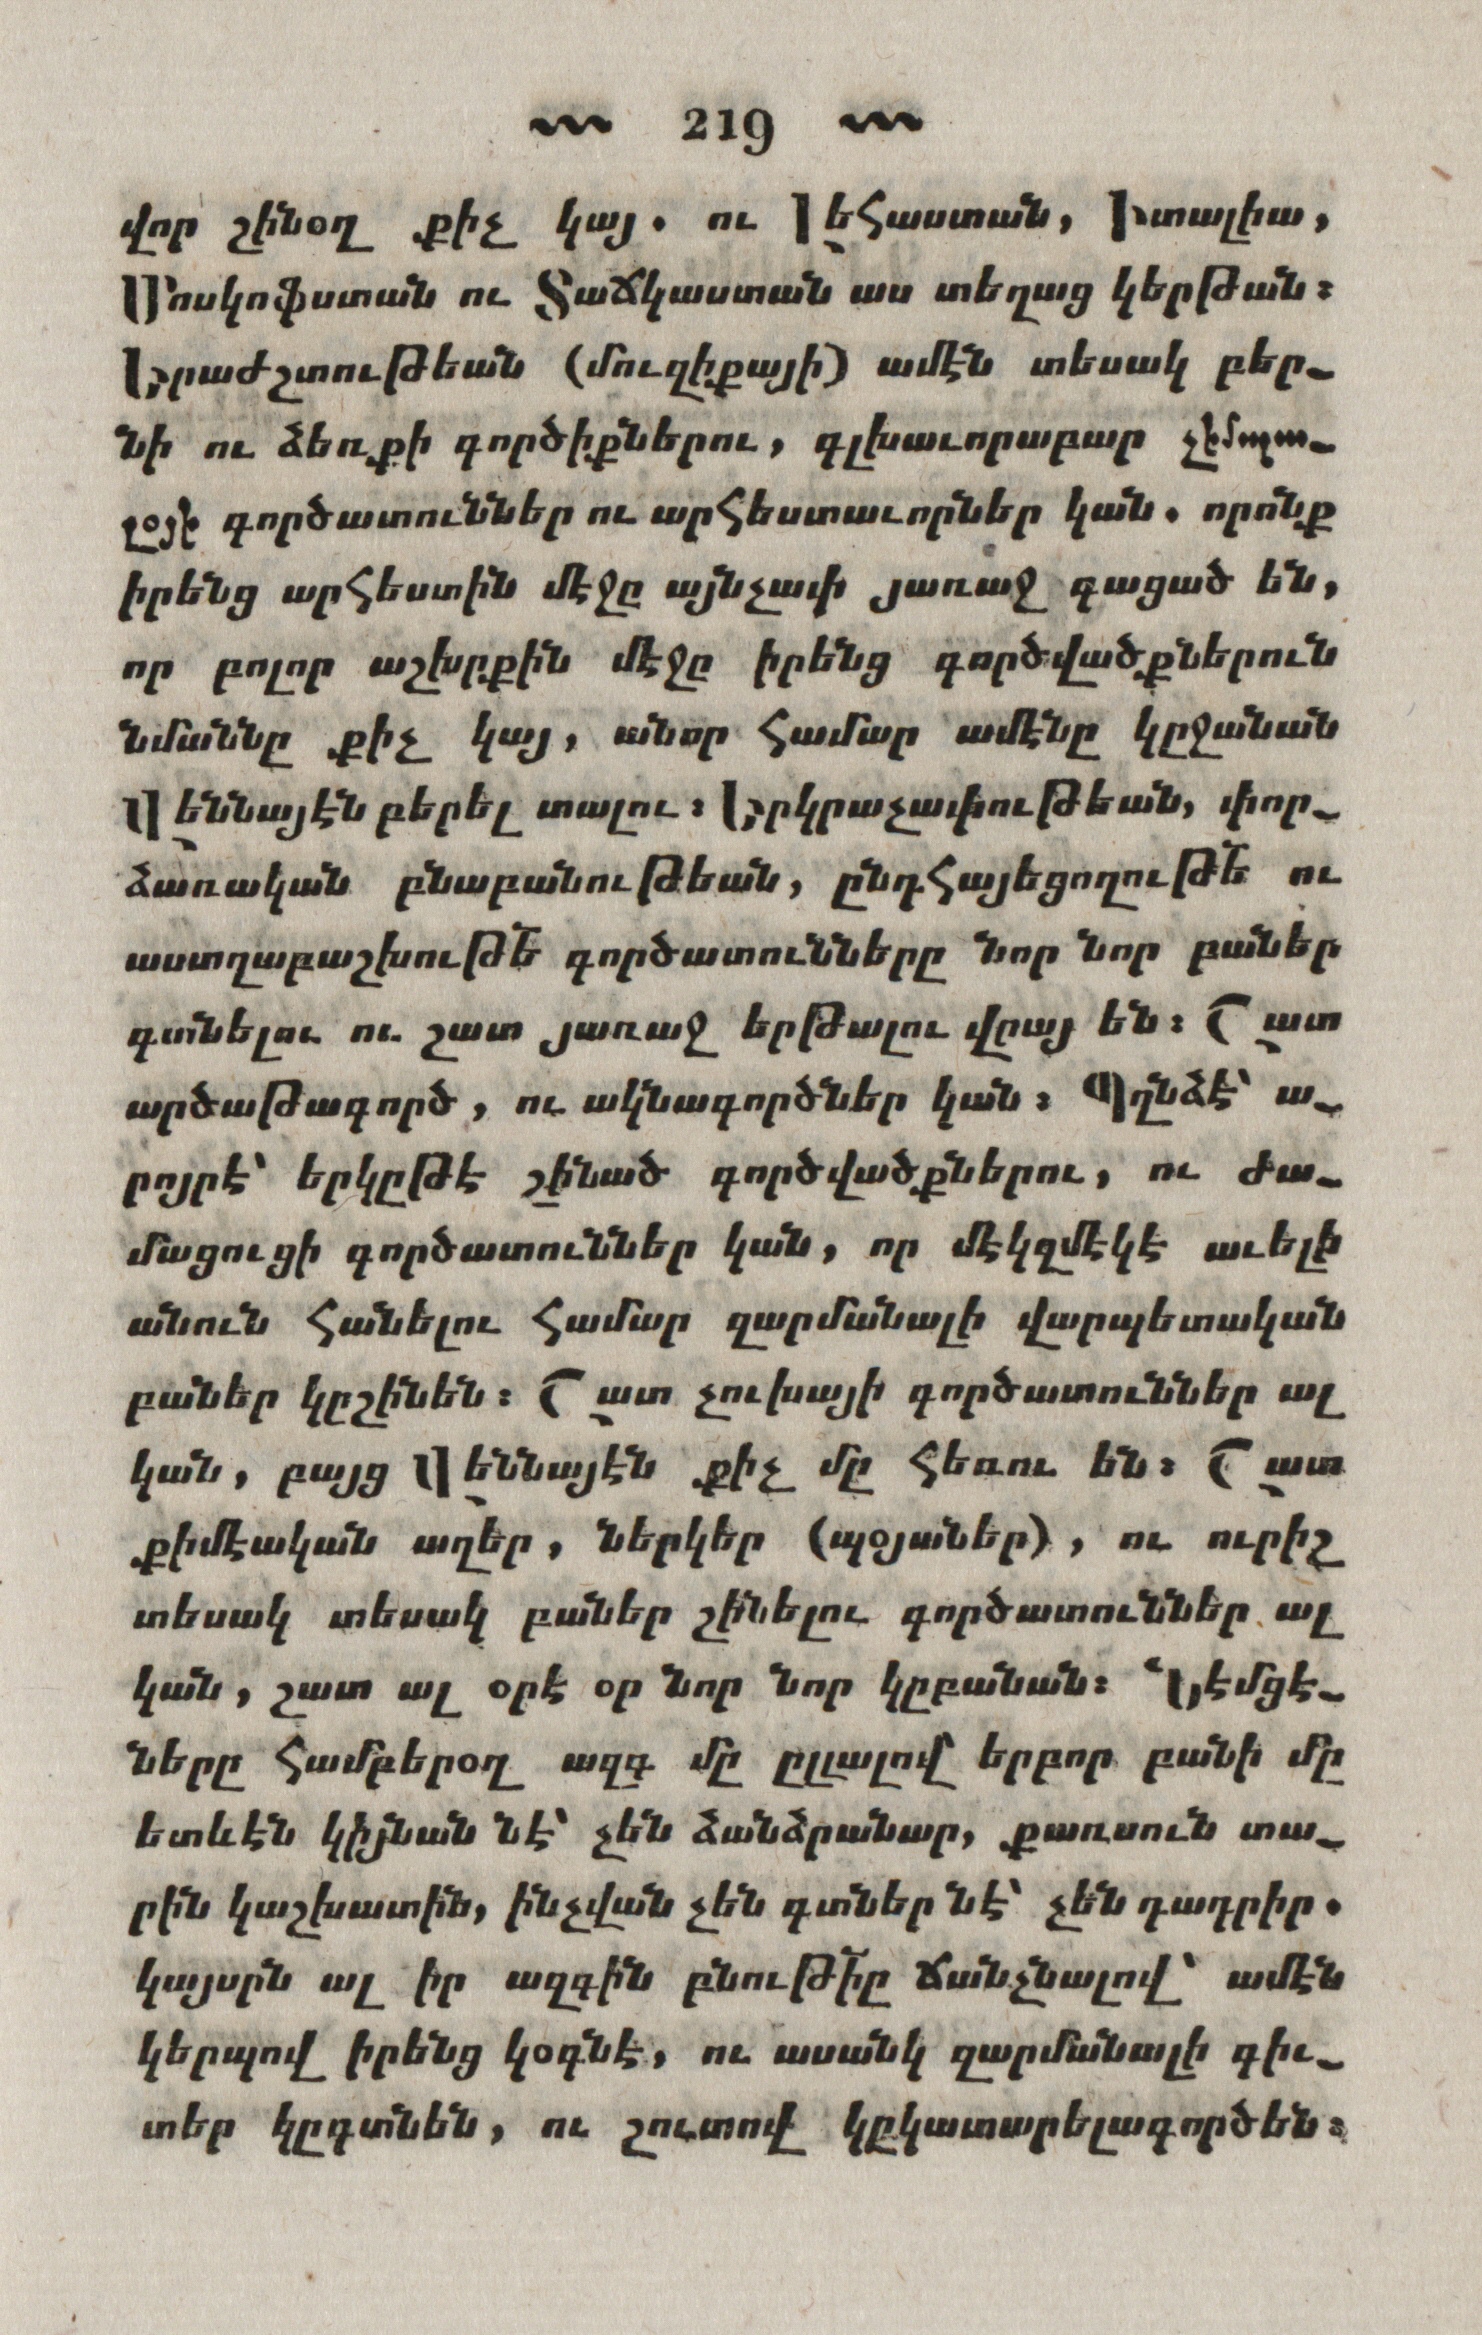 219
վոր շինօղ քիչ կայ. ու Լեհաստան, Իտալիա,
Մոսկոֆստան ու Տաճկաստան աս տեղաց կերթան։
Երաժշտութեան (մուզիքայի) ամէն տեսակ բեր֊
նի ու ձեռքի գործիքներու, գլխաւորաբար չէմպա֊
լօյի գործատուններ ու արհեստաւորներ կան. որոնք
իրենց արհեստին մէջը այնչափ յառաջ գացած են,
որ բոլոր աշխրքին մէջը իրենց գործվածքներուն
նմաննը քիչ կայ, անոր համար ամէնը կըջանան
Վեննայէն բերել տալու։ Երկրաչափութեան, փոր֊
ձառական բնաբանութեան, ընդհայեցողութե՞ ու
աստղաբաշխութե՞ գործատունները նոր նոր բաներ
գտնելու ու շատ յառաջ երթալու վըայ են։ Շատ
արծաթագործ, ու ակնագործներ կան։ Պղնձէ՝ ա֊
րոյրէ՝ երկըթէ շինած գործվածքներու, ու ժա֊
մացուցի գործատուններ կան, որ մէկզմէկէ աւելի
անուն հանելու համար զարմանալի վարպետական
բաներ կըշինեն։ Շատ չուխայի գործատուններ ալ
կան, բայց Վեննայէն քիչ մը հեռու են։ Շատ
քիմէական աղեր, ներկեր (պօյաներ), ու ուրիշ
տեսակ տեսակ բաներ շինելու գործատուններ ալ
կան, շատ ալ օրէ օր նոր նոր կըբանան։ Նէմցէ֊
ները համբերօղ ազգ մը ըլլալով՝ երբոր բանի մը
ետևէն կիյնան նէ՝ չեն ձանձրանար, քառսուն տա֊
րին կաշխատին, ինչվան չեն գտներ նէ՝ չեն դադրիր.
կայսրն ալ իր ազգին բնութի՞ը ճանչնալով՝ ամէն
կերպով իրենց կօգնէ, ու ասանկ զարմանալի գիւ֊
տեր կըգտնեն, ու շուտով կըկատարելագործեն։